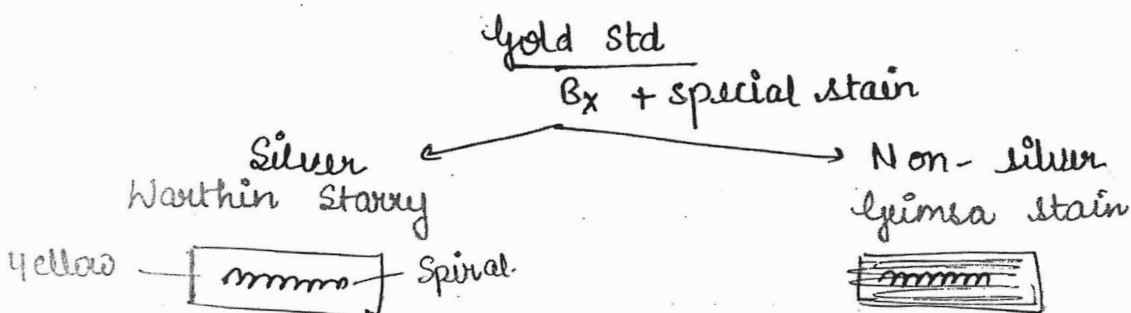 Gold Std
Bx + special stain
Silver
Warthin Starry
Non-silver
Geimsa stain
Yellow
Spiral.